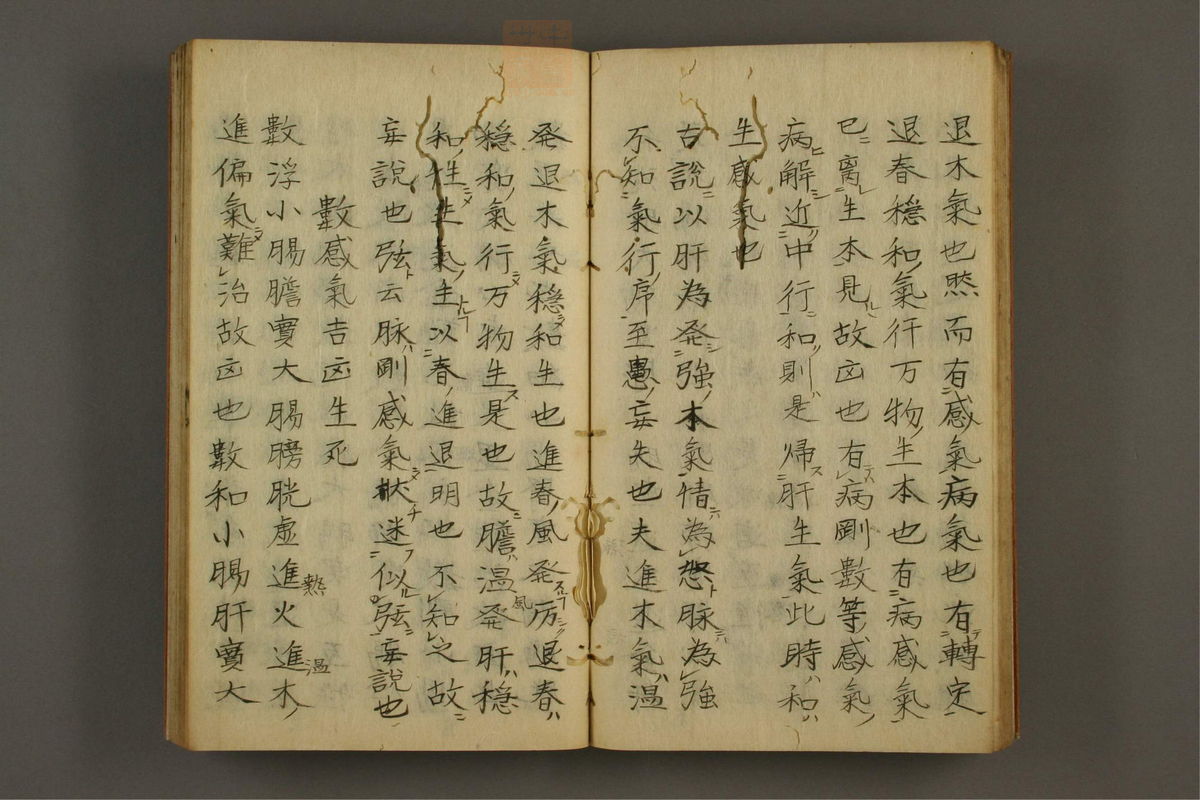 退木氣也然而有感氣病氣也有轉定
退春穏和氣行万物生本也有病感氣
已离生本見故凶也有病剛數等感氣
病解近中行和則是帰肝生氣此時和
生感氣也
古說以肝為発強本氣情為怒脉為強
不知氣行序至愚妄失也夫進木氣温
発退木氣穏和生也進春風発厉退春
穏和氣行万物生是也故膽温風発肝穏
和性生氣主以春進退明也不知之故
妄說也弦云脉剛感氣状迷似弦妄說也
數感氣吉凶生死
數浮小腸膽實大腸膀胱虛進火熱進木温
進偏氣難治故凶也數和小腸肝實大